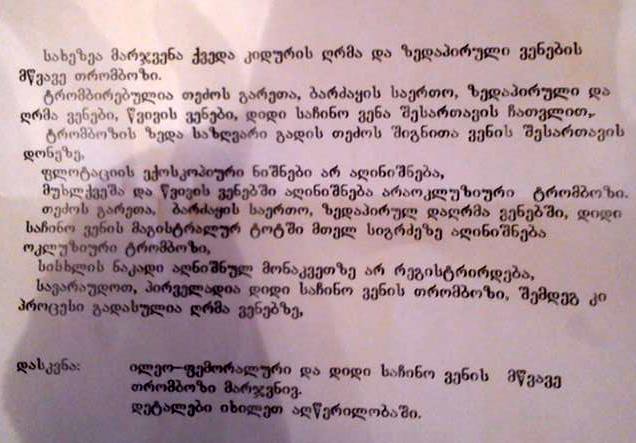 სახეზეა მარჯვენა ქვედა კიდურის ღრმა და ზედაპირული ვენების
მწვავე თრომბოზი.
ტრომბირებულია თეძოს გარეთა, ბარძაყის საერთო, ზედაპირული და
ღრმა ვენები, წვივის ვენები, დიდი საჩინო ვენა შესართავის ჩათვლით,.
ტრომბოზის ზედა საზღვარი გადის თეძოს შიგნითა ვენის შესართავის
დონეზე,
ფლოტაციის ექოსკოპიური ნიშნები არ აღინიშნება,
მუხლქვეშა და წვივის ვენებში აღინიშნება არაოკლუზიური ტრომბოზი.
თეძოს გარეთა, ბარძაყის საერთო, ზედაპირულ დაღრმა ვენებში, დიდი
საჩინო ვენის მაგისტრალურ ტოტში მთელ სიგრძეზე აღინიშნება
ოკლუზიური ტრომბოზი,
სისხლის ნაკადი აღნიშნულ მონაკვეთზე არ რეგისტრირდება,
სავარაუდოთ, პირველადია დიდი საჩინო ვენის თრომბოზი, შემდეგ კი
პროცესი გადასულია ღრმა ვენებზე,
დასკვნა: ილეო-ფემორალური და დიდი საჩინო ვენის მწვავე
თრომბოზი მარჯვნივ.
დეტალები იხილეთ აღწერილობაში.